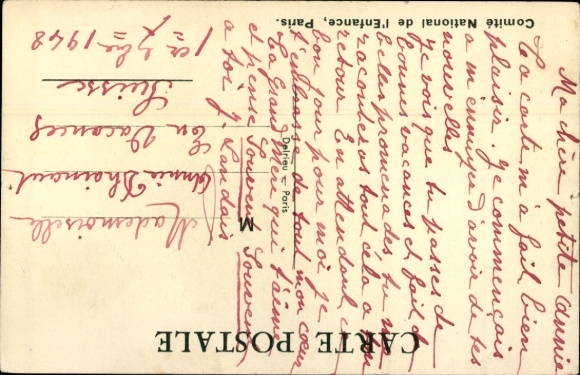 CARTE POSTALE
Ma chère petite Annie
Ta carte m'a fait bien
plaisir. Je commençais
a m'ennuyer d'avoir de tes
nouvelles
Je vois que tu passes de
bonnes vacances et fait de
belles promenades tu me
raconteras tout cela a ton
retour En attendant ce
bon jour pour moi je
t'embrasse de tout mon cœur
Ta Grand Mère qui t'aime
et pense souvent souvent
a toi J. Landais
M
Mademoiselle
Annie Thainaut
En Vacances
Suisse
1er 7bre 1948
Delrieu - Paris
Comité National de l'Enfance, Paris.